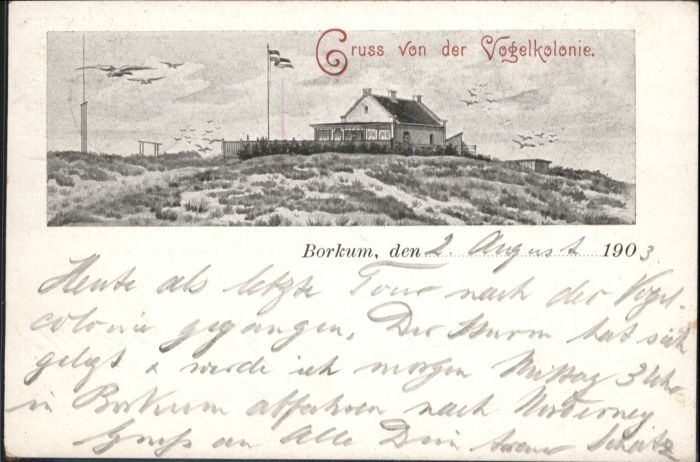 Gruss von der Vogelkolonie.
Borkum, den 2 August 1903.
Heute als letzte Tour nach der Vogel-
colonie gegangen. Der Sturm hat sich
gelegt & werde ich morgen Mittag 3 Uhr
in Borkum abfahren nach Norderney
Gruß an Alle Dein treuer